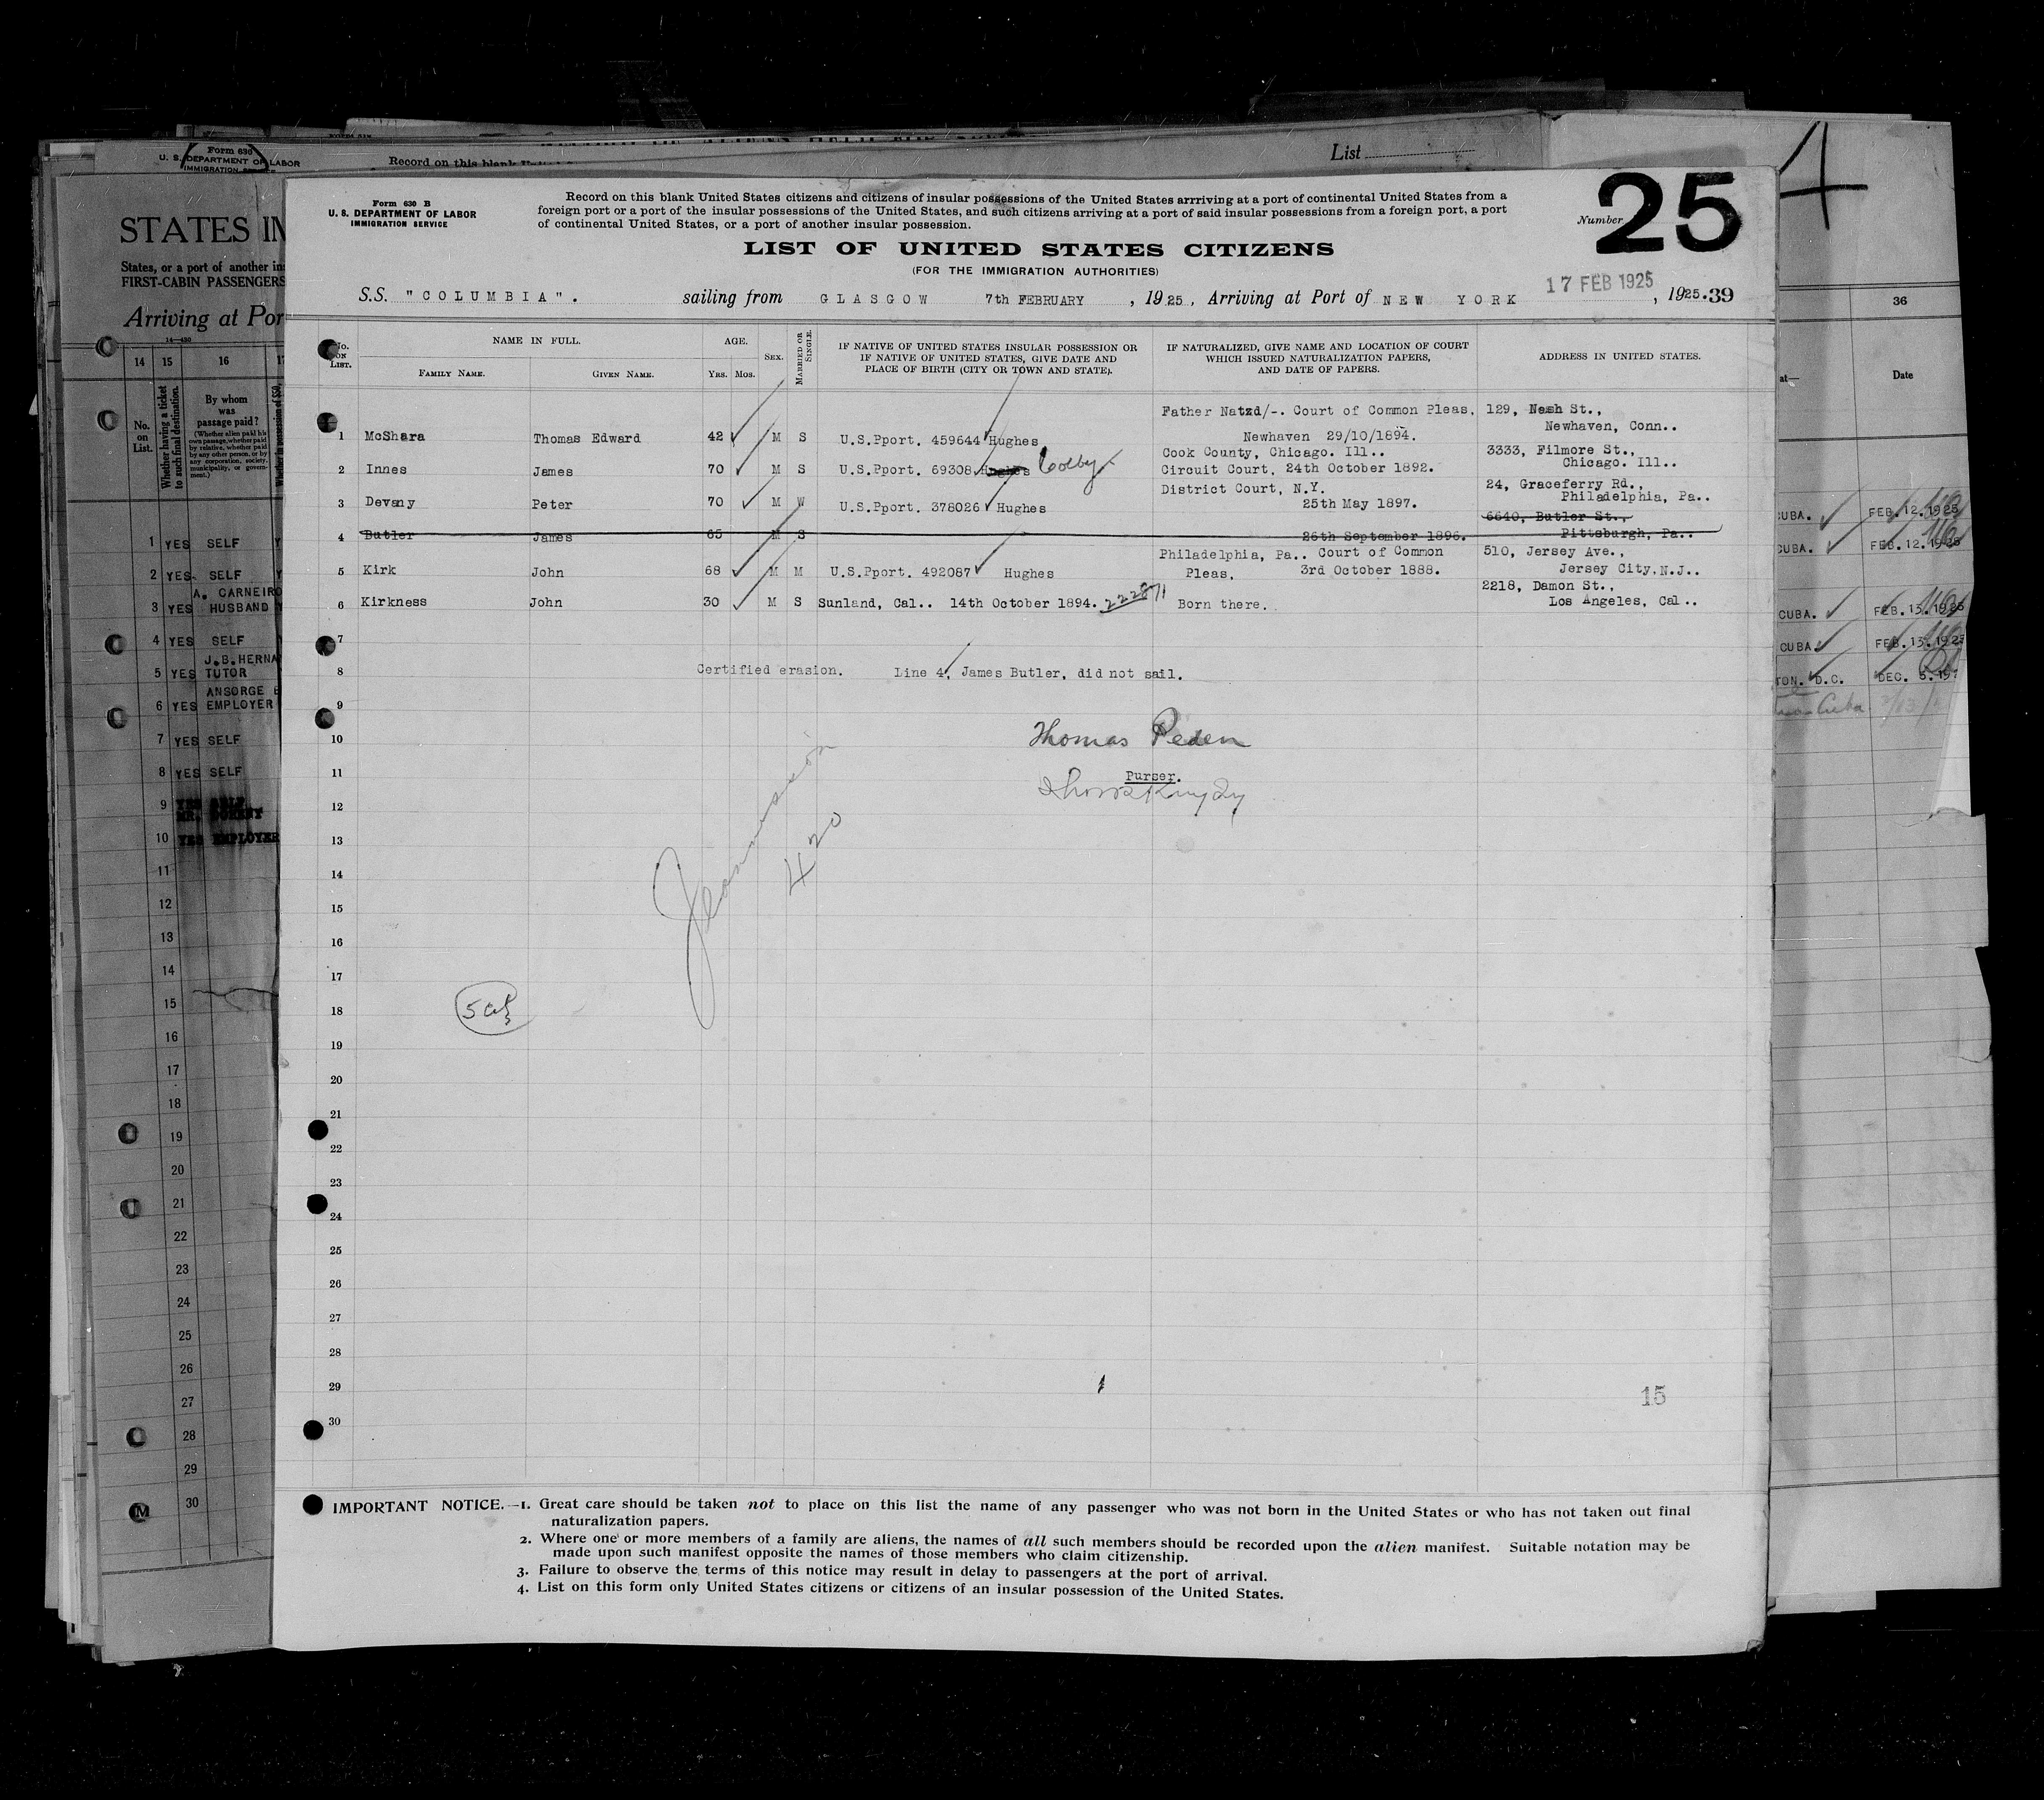 Form 630
U. S. DEPARTMENT OF LABOR
IMMIGRATION
Record on this blank
List
4
STATES IN
States, or a port of another ins
FIRST-CABIN PASSENGERS
Arriving at Por
14 15 16
No. on List.
Whether having a ticket to such final destination.
By whom was passage paid?
(Whether alien paid his own passage, whether paid by relative, whether paid by any other person, or by any corporation, society, municipality, or government.)
1 YES SELF
2 YES SELF
A. CARNEIRO
3 YES HUSBAND
4 YES SELF
J.B.HERNA
5 YES TUTOR
ANSORGE
6 YES EMPLOYER
7 YES SELF
8 YES SELF
9 YES SELF
MR.
10 YES EMPLOYER
11
12
13
14
15
16
17
18
19
20
21
22
23
24
25
26
27
28
29
30
M
Form 630 B
U. S. DEPARTMENT OF LABOR
IMMIGRATION SERVICE
Record on this blank United States citizens and citizens of insular possessions of the United States arrriving at a port of continental United States from a
foreign port or a port of the insular possessions of the United States, and such citizens arriving at a port of said insular possessions from a foreign port, a port
of continental United States, or a port of another insular possession.
Number 25
LIST OF UNITED STATES CITIZENS
(FOR THE IMMIGRATION AUTHORITIES)
S.S. "COLUMBIA". sailing from GLASGOW 7th FEBRUARY , 1925, Arriving at Port of NEW YORK 17 FEB 1925 , 1925.39
No. ON LIST.
NAME IN FULL.
FAMILY NAME. GIVEN NAME.
AGE.
YRS. MOS.
SEX.
MARRIED OR SINGLE.
IF NATIVE OF UNITED STATES INSULAR POSSESSION OR
IF NATIVE OF UNITED STATES, GIVE DATE AND
PLACE OF BIRTH (CITY OR TOWN AND STATE).
IF NATURALIZED, GIVE NAME AND LOCATION OF COURT
WHICH ISSUED NATURALIZATION PAPERS,
AND DATE OF PAPERS.
ADDRESS IN UNITED STATES.
Father Natzd/-. Court of Common Pleas, 129, Nash St.,
1 McShara Thomas Edward 42 M S U.S.Pport. 459644 Hughes Newhaven 29/10/1894. Newhaven, Conn..
Cook County, Chicago. Ill.. 3333, Filmore St.,
2 Innes James 70 M S U.S.Pport. 69308 Hughes Colby Circuit Court, 24th October 1892. Chicago. Ill..
District Court, N.Y. 24, Graceferry Rd.,
3 Devany Peter 70 M W U.S.Pport. 378026 Hughes 25th May 1897. Philadelphia, Pa..
6640, Butler St.,
4 Butler James 65 M S 26th September 1896. Pittsburgh, Pa..
Philadelphia, Pa.. Court of Common 510, Jersey Ave.,
5 Kirk John 68 M M U.S.Pport. 492087 Hughes Pleas, 3rd October 1888. Jersey City, N.J..
2218, Damon St.,
6 Kirkness John 30 M S Sunland, Cal.. 14th October 1894. 22871 Born there. Los Angeles, Cal..
7
8 Certified erasion. Line 4, James Butler, did not sail.
9
10 Thomas Peden
11 Purser.
12
13
420
14
15
16
17
18
19
20
21
22
23
24
25
26
27
28
29
15
30
IMPORTANT NOTICE.—1. Great care should be taken not to place on this list the name of any passenger who was not born in the United States or who has not taken out final
naturalization papers.
2. Where one or more members of a family are aliens, the names of all such members should be recorded upon the alien manifest. Suitable notation may be
made upon such manifest opposite the names of those members who claim citizenship.
3. Failure to observe the terms of this notice may result in delay to passengers at the port of arrival.
4. List on this form only United States citizens or citizens of an insular possession of the United States.
36
at— Date
CUBA. FEB. 12. 1925
CUBA. FEB. 12. 1925
CUBA. FEB. 13. 1925
CUBA FEB. 13. 192
TON. D.C. DEC. 5. 19
Cuba